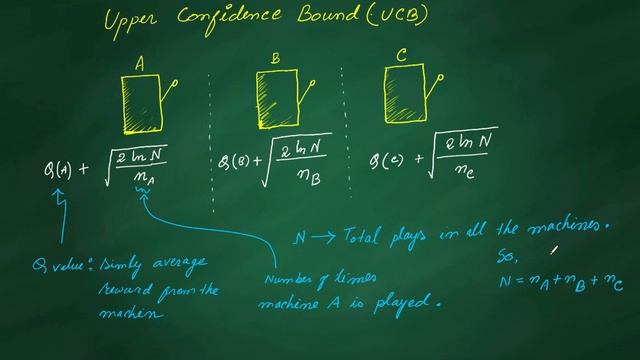 Upper Confidence Bound (UCB)
A B C
Q(A) + √(2 ln N / n_A) Q(B) + √(2 ln N / n_B) Q(C) + √(2 ln N / n_C)
N → Total plays in all the machines.
So,
N = n_A + n_B + n_C
Q value: Simly average
reward from the
machin
Number of times
machine A is played.